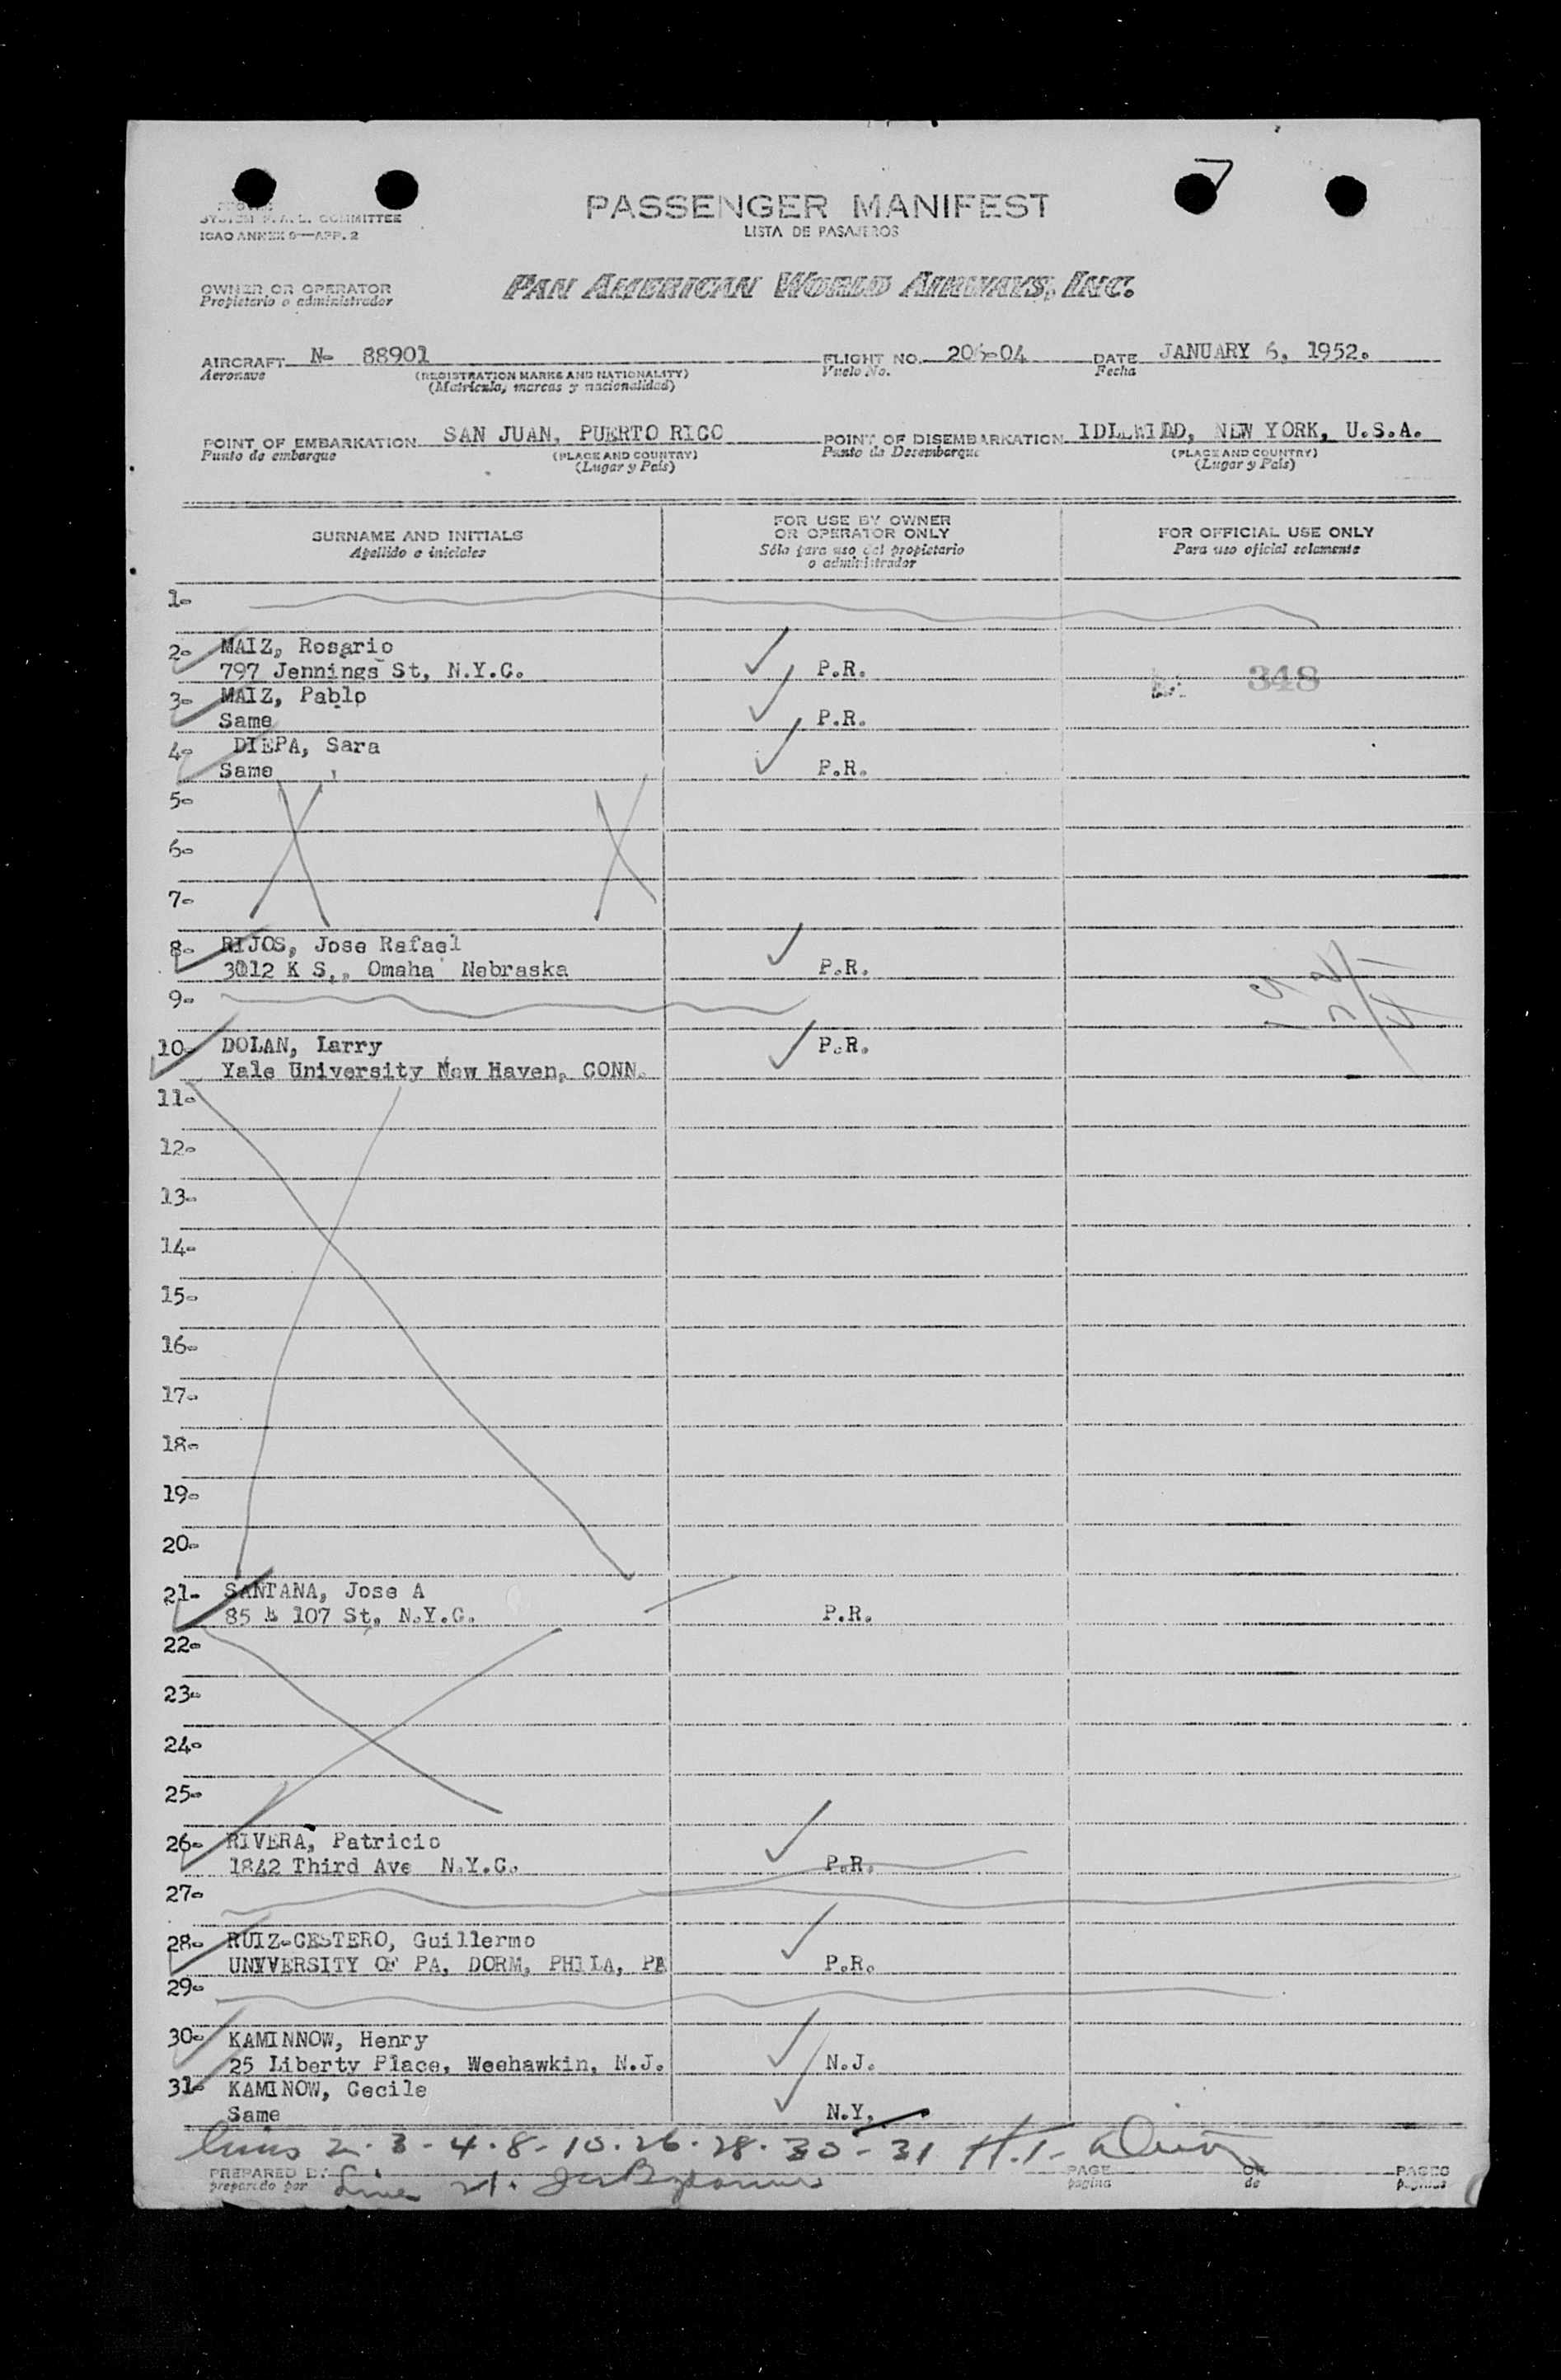 PASSENGER MANIFEST
LISTA DE PASAJEROS
SYSTEM F.A.L. COMMITTEE
ICAO ANNEX 9—APP. 2
OWNER OR OPERATOR
Propietario o administrador
PAN AMERICAN WORLD AIRWAYS, INC.
AIRCRAFT N- 88901 FLIGHT NO. 206-04 DATE JANUARY 6, 1952.
Aeronave (REGISTRATION MARKS AND NATIONALITY) Vuelo No. Fecha
(Matrícula, marcas y nacionalidad)
POINT OF EMBARKATION SAN JUAN, PUERTO RICO POINT OF DISEMBARKATION IDLEWILD, NEW YORK, U.S.A.
Punto de embarque (PLACE AND COUNTRY) Punto de Desembarque (PLACE AND COUNTRY)
(Lugar y País) (Lugar y País)
SURNAME AND INITIALS FOR USE BY OWNER OR OPERATOR ONLY FOR OFFICIAL USE ONLY
Apellido e iniciales Sólo para uso del propietario o administrador Para uso oficial solamente
1-
2- MAIZ, Rosario
797 Jennings St, N.Y.C. P.R. 348
3- MAIZ, Pablo
Same P.R.
4- DIEPA, Sara
Same P.R.
5-
6-
7-
8- RIJOS, Jose Rafael
3012 K S,. Omaha Nebraska P.R.
9-
10- DOLAN, Larry P.R.
Yale University New Haven, CONN.
11-
12-
13-
14-
15-
16-
17-
18-
19-
20-
21- SANTANA, Jose A
85 107 St, N.Y.C. P.R.
22-
23-
24-
25-
26- RIVERA, Patricio
1842 Third Ave N.Y.C. P.R.
27-
28- RUIZ-CESTERO, Guillermo
UNIVERSITY OF PA, DORM, PHILA, PA P.R.
29-
30- KAMINNOW, Henry
25 Liberty Place, Weehawkin, N.J. N.J.
31- KAMINOW, Cecile
Same N.Y.
2. 3 - 4. 8 - 10. 26. 28. 30 - 31
PREPARED BY Line 21. PAGE OF PAGES
preparado por página de páginas